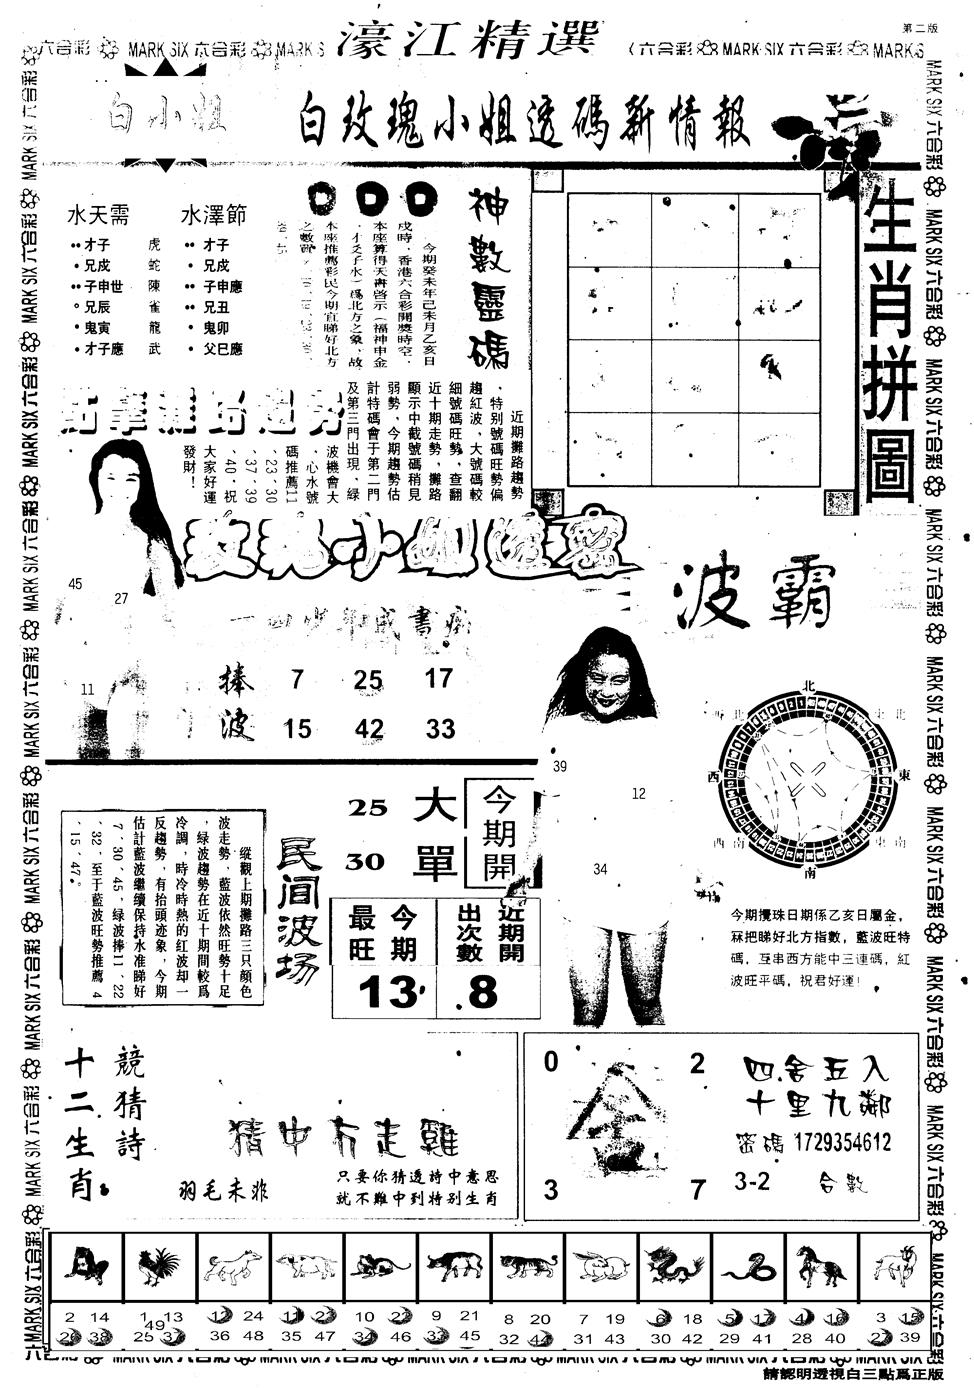 第二版
六合彩 MARK SIX 六合彩 MARK S
濠江精選
六合彩 MARK SIX 六合彩 MARK S
白小姐
白玫瑰小姐透碼新情報
水天需
水澤節
才子 虎 才子
兄戌 蛇 兄戌
子申世 陳 子申應
兄辰 雀 兄丑
鬼寅 龍 鬼卯
才子應 武 父巳應
神數靈碼
今期癸未年己未月乙亥日
戌時，香港六合彩開獎時空，
本座算得天書啓示（福神申金
，才爻子水）爲北方之象，故
本座推薦彩民今期宜睇好北方
之數寶
生肖拼圖
點擊灘路趨勢
近期攤路趨勢
，特別號碼旺勢偏
趨紅波，大號碼較
細號碼旺勢，查翻
近十期走勢，攤路
顯示中截號碼稍見
弱勢，今期趨勢估
計特碼會于第二門
及第三門出現，綠
波機會大
，心水號
碼推薦11
、23、30
、37、39
、40，祝
大家好運
發財！
玫瑰小姐透靈
45
27
11
捧波
7 25 17
15 42 33
波霸
39
12
34
北
東北
東
東南
南
西南
西
西北
今期攪珠日期係乙亥日屬金，
冧把睇好北方指數，藍波旺特
碼，互串西方能中三連碼，紅
波旺平碼，祝君好運！
民间波场
縱觀上期攤路三只顔色
波走勢，藍波依然旺勢十足
，绿波趨勢在近十期間較爲
冷調，時冷時熱的紅波却一
反趨勢，有抬頭迹象，今期
估計藍波繼續保持水准睇好
7、30、45，绿波捧11、22
、32，至于藍波旺勢推薦4
、15、47。
今期開
大單
25
30
今期最旺
13
近期開出次數
8
十二生肖
競猜詩
猜中冇走雞
羽毛未非
只要你猜透詩中意思
就不難中到特别生肖
0 2
3 7
四舍五入
十里九鄰
密碼 1729354612
3-2 合數
2 14
26 38
1 13
49
25 37
12 24
36 48
11 23
35 47
10 22
34 46
9 21
33 45
8 20
32 44
7 19
31 43
6 18
30 42
5 17
29 41
4 16
28 40
3 15
27 39
請認明透視白三點爲正版